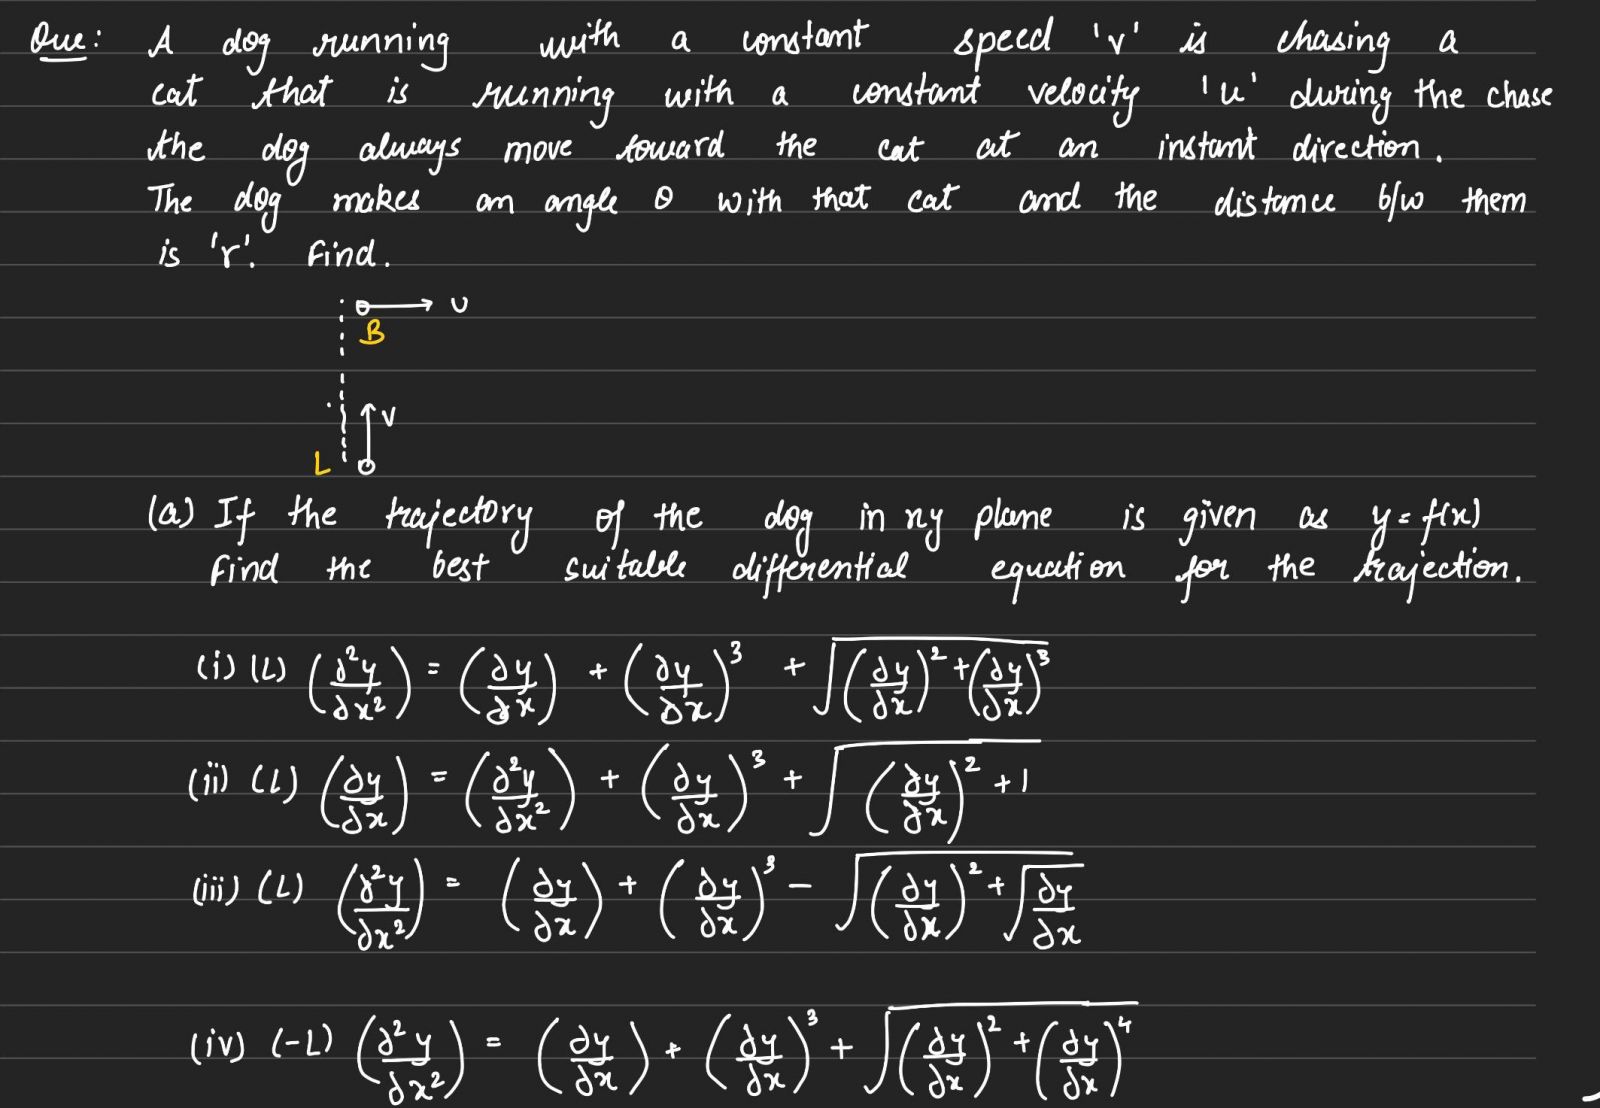 Que: A dog running with a constant speed 'v' is chasing a
cat that is running with a constant velocity 'u' during the chase
the dog always move toward the cat at an instant direction.
The dog makes an angle θ with that cat and the distance b/w them
is 'r'. Find.
U
B
V
L
(a) If the trajectory of the dog in xy plane is given as y = f(x)
find the best suitable differential equation for the trajection.
(i) (L) (∂²y/∂x²) = (∂y/∂x) + (∂y/∂x)³ + √((∂y/∂x)² + (∂y/∂x)³)
(ii) (L) (∂y/∂x) = (∂²y/∂x²) + (∂y/∂x)³ + √((∂y/∂x)² + 1)
(iii) (L) (∂²y/∂x²) = (∂y/∂x) + (∂y/∂x)³ - √((∂y/∂x)² + √(∂y/∂x))
(iv) (-L) (∂²y/∂x²) = (∂y/∂x) + (∂y/∂x)³ + √((∂y/∂x)² + (∂y/∂x)⁴)